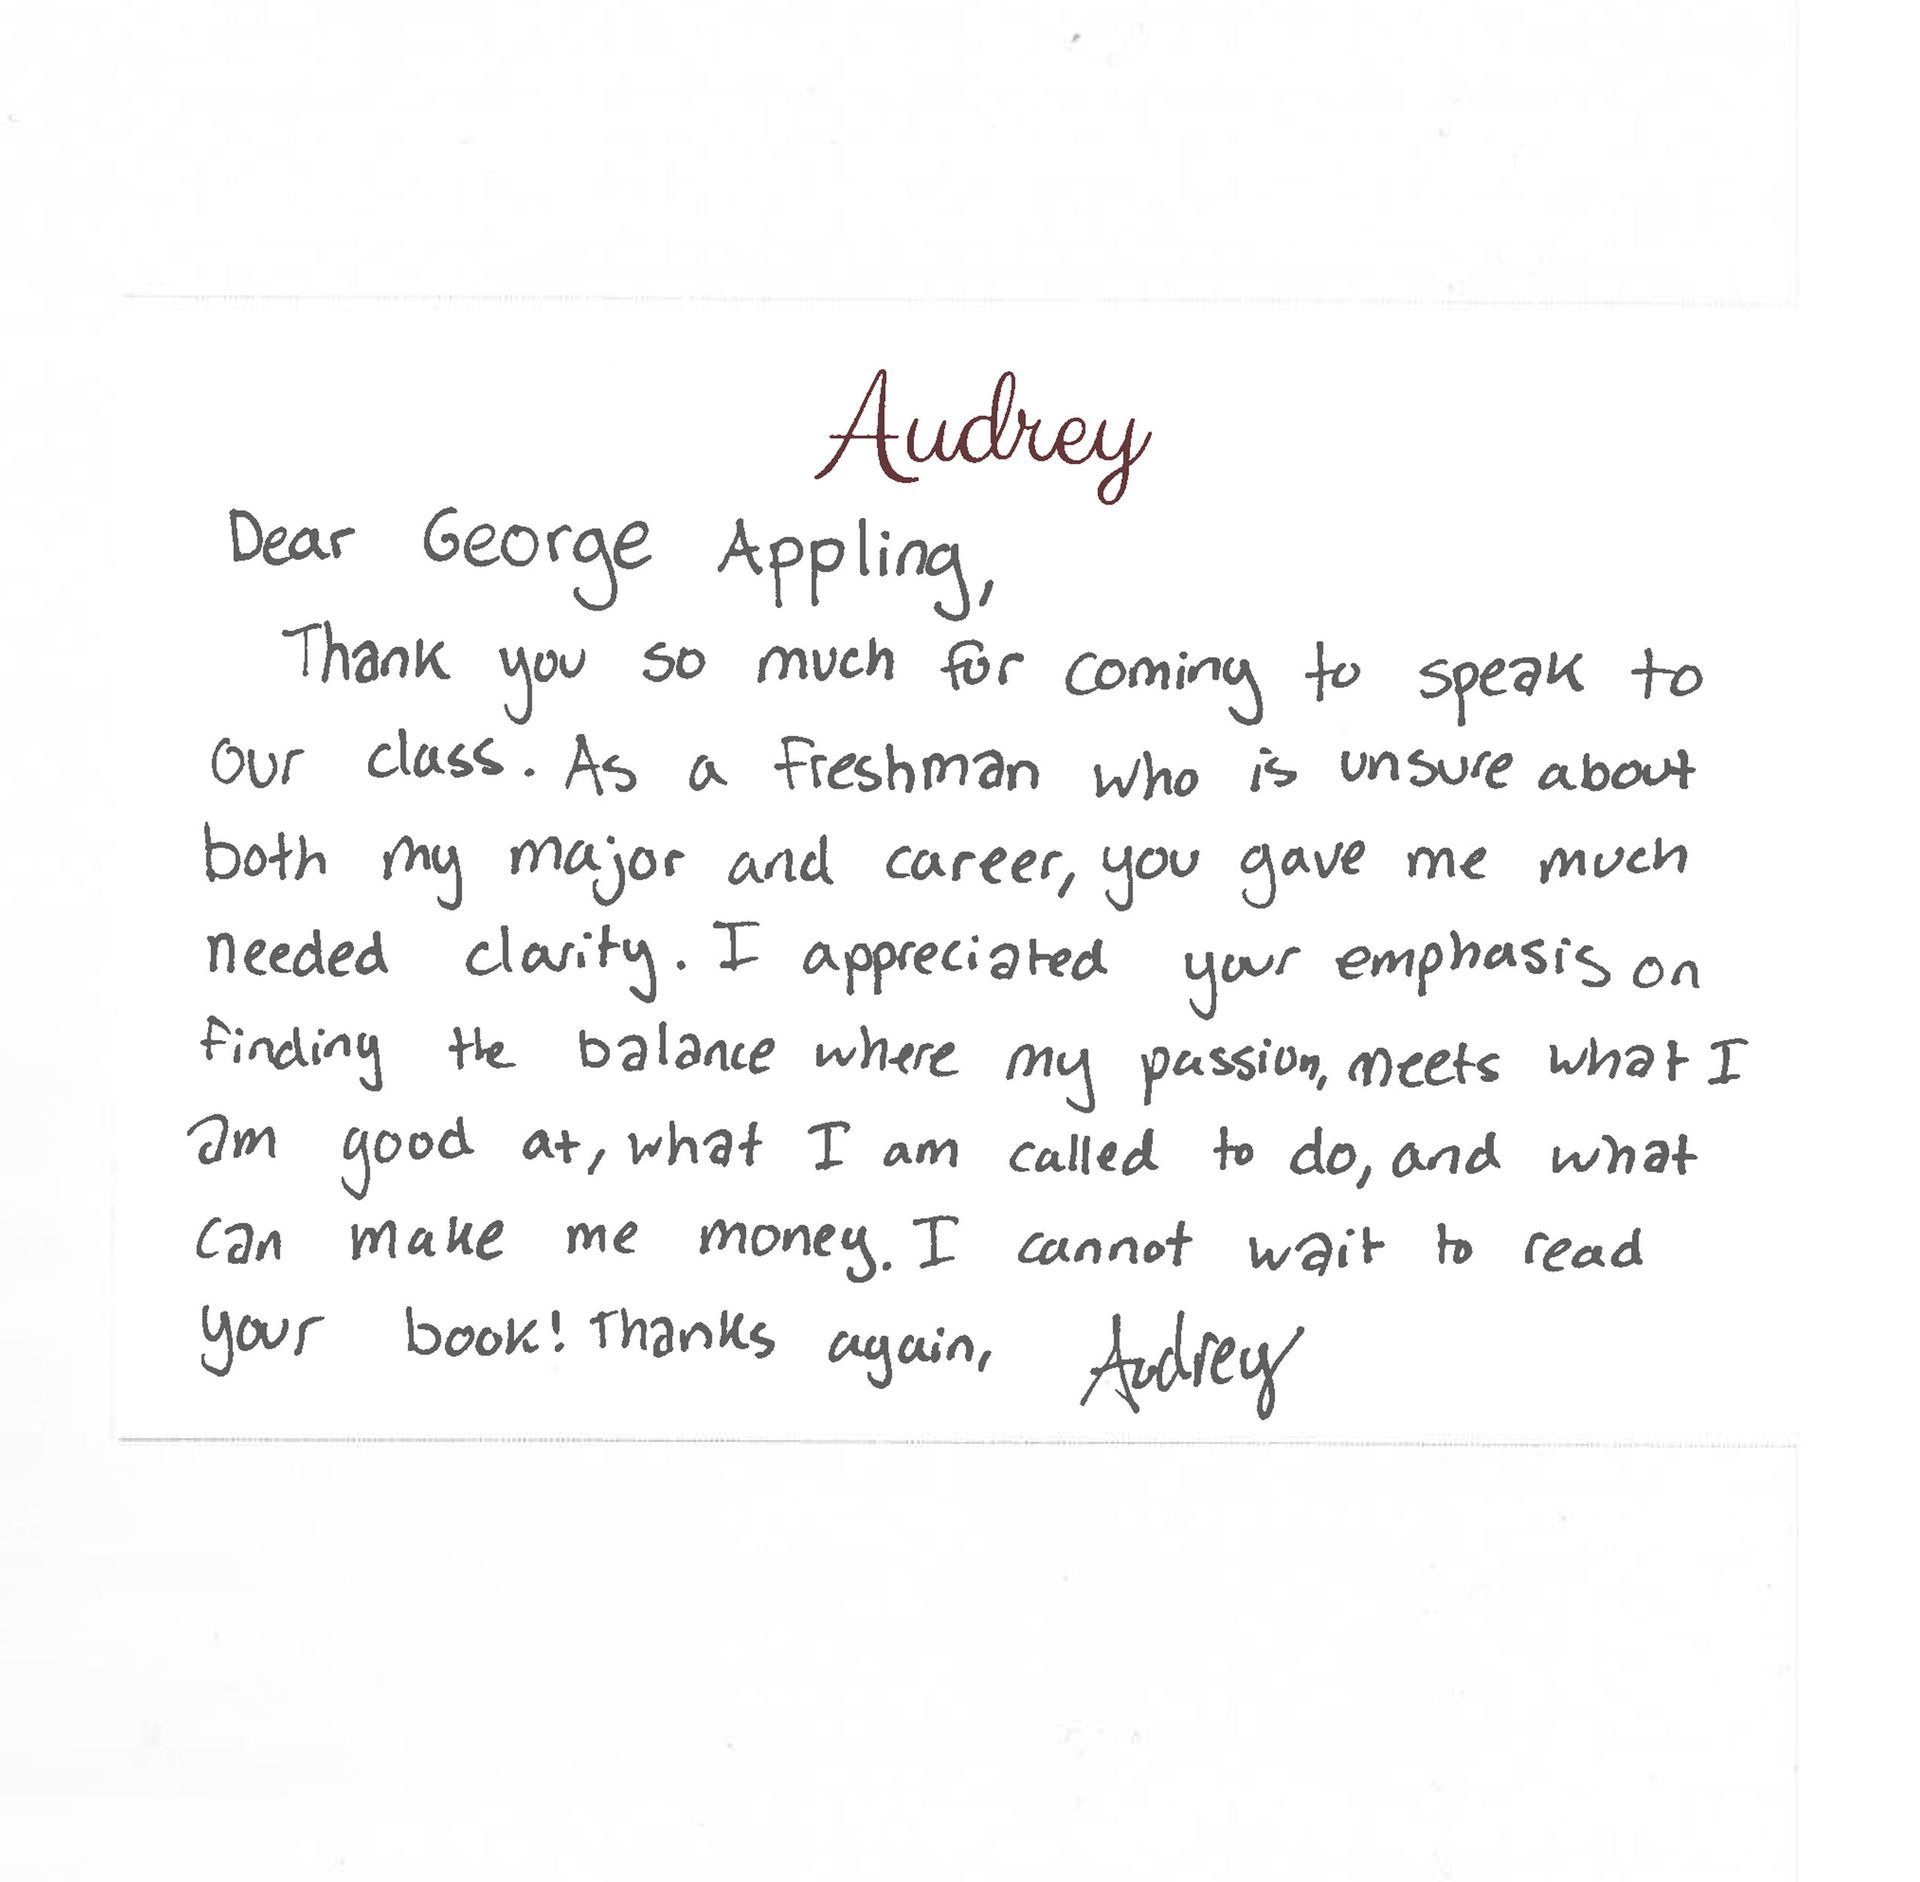 Audrey
Dear George Appling,
Thank you so much for coming to speak to
our class. As a freshman who is unsure about
both my major and career, you gave me much
needed clarity. I appreciated your emphasis on
finding the balance where my passion, meets what I
am good at, what I am called to do, and what
can make me money. I cannot wait to read
your book! Thanks again, Audrey